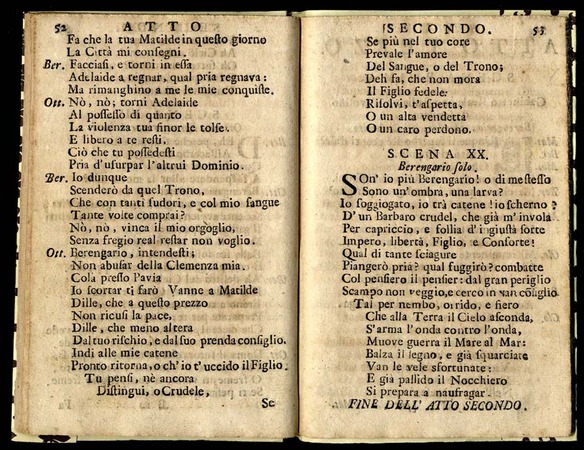 52 ATTO
Fa che la tua Matilde in questo giorno
La Città mi consegni.
Ber. Facciasi, e torni in essa
Adelaide a regnar, qual pria regnava:
Ma rimanghino a me le mie conquiste.
Ott. Nò, nò; torni Adelaide
Al possesso di quanto
La violenza tua finor le tolse.
E libero a te resti,
Ciò che tu possedesti
Pria d'usurpar l'altrui Dominio.
Ber. Io dunque
Scenderò da quel Trono,
Che con tanti sudori, e col mio sangue
Tante volte comprai?
Nò, nò, vinca il mio orgoglio,
Senza fregio real restar non voglio.
Ott. Berengario, intendesti;
Non abusar della Clemenza mia.
Colà presso Pavia
Io scortar ti farò Vanne a Matilde
Dille, che a questo prezzo
Non ricusi la pace,
Dille, che meno altera
Dal tuo rischio, e dal suo prenda consiglio.
Indi alle mie catene
Pronto ritorna, o ch'io t'uccido il Figlio.
Tu pensi, nè ancora
Distingui, o Crudele,
Se
SECONDO. 53
Se più nel tuo core
Prevale l'amore
Del Sangue, o del Trono;
Deh fa, che non mora
Il Figlio fedele:
Risolvi, t'aspetta,
O un alta vendetta
O un caro perdono.
SCENA XX.
Berengario solo.
SOn' io più Berengario! o di me stesso
Sono un'ombra, una larva?
Io soggiogato, io trà catene! io scherno?
D'un Barbaro crudel, che già m'invola
Per capriccio, e follia d'ingiusta sorte
Impero, libertà, Figlio, e Consorte!
Qual di tante sciagure
Piangerò pria? qual fuggirò? combatte
Col pensiero il pensier: dal gran periglio
Scampo non veggio, e cerco in van cõsiglio
Tal per nembo, orrido, e fiero
Che alla Terra il Cielo asconda,
S'arma l'onda contro l'onda,
Muove guerra il Mare al Mar:
Balza il legno, e già squarciate
Van le vele sfortunate:
E già pallido il Nocchiero
Si prepara a naufragar.
FINE DELL' ATTO SECONDO.